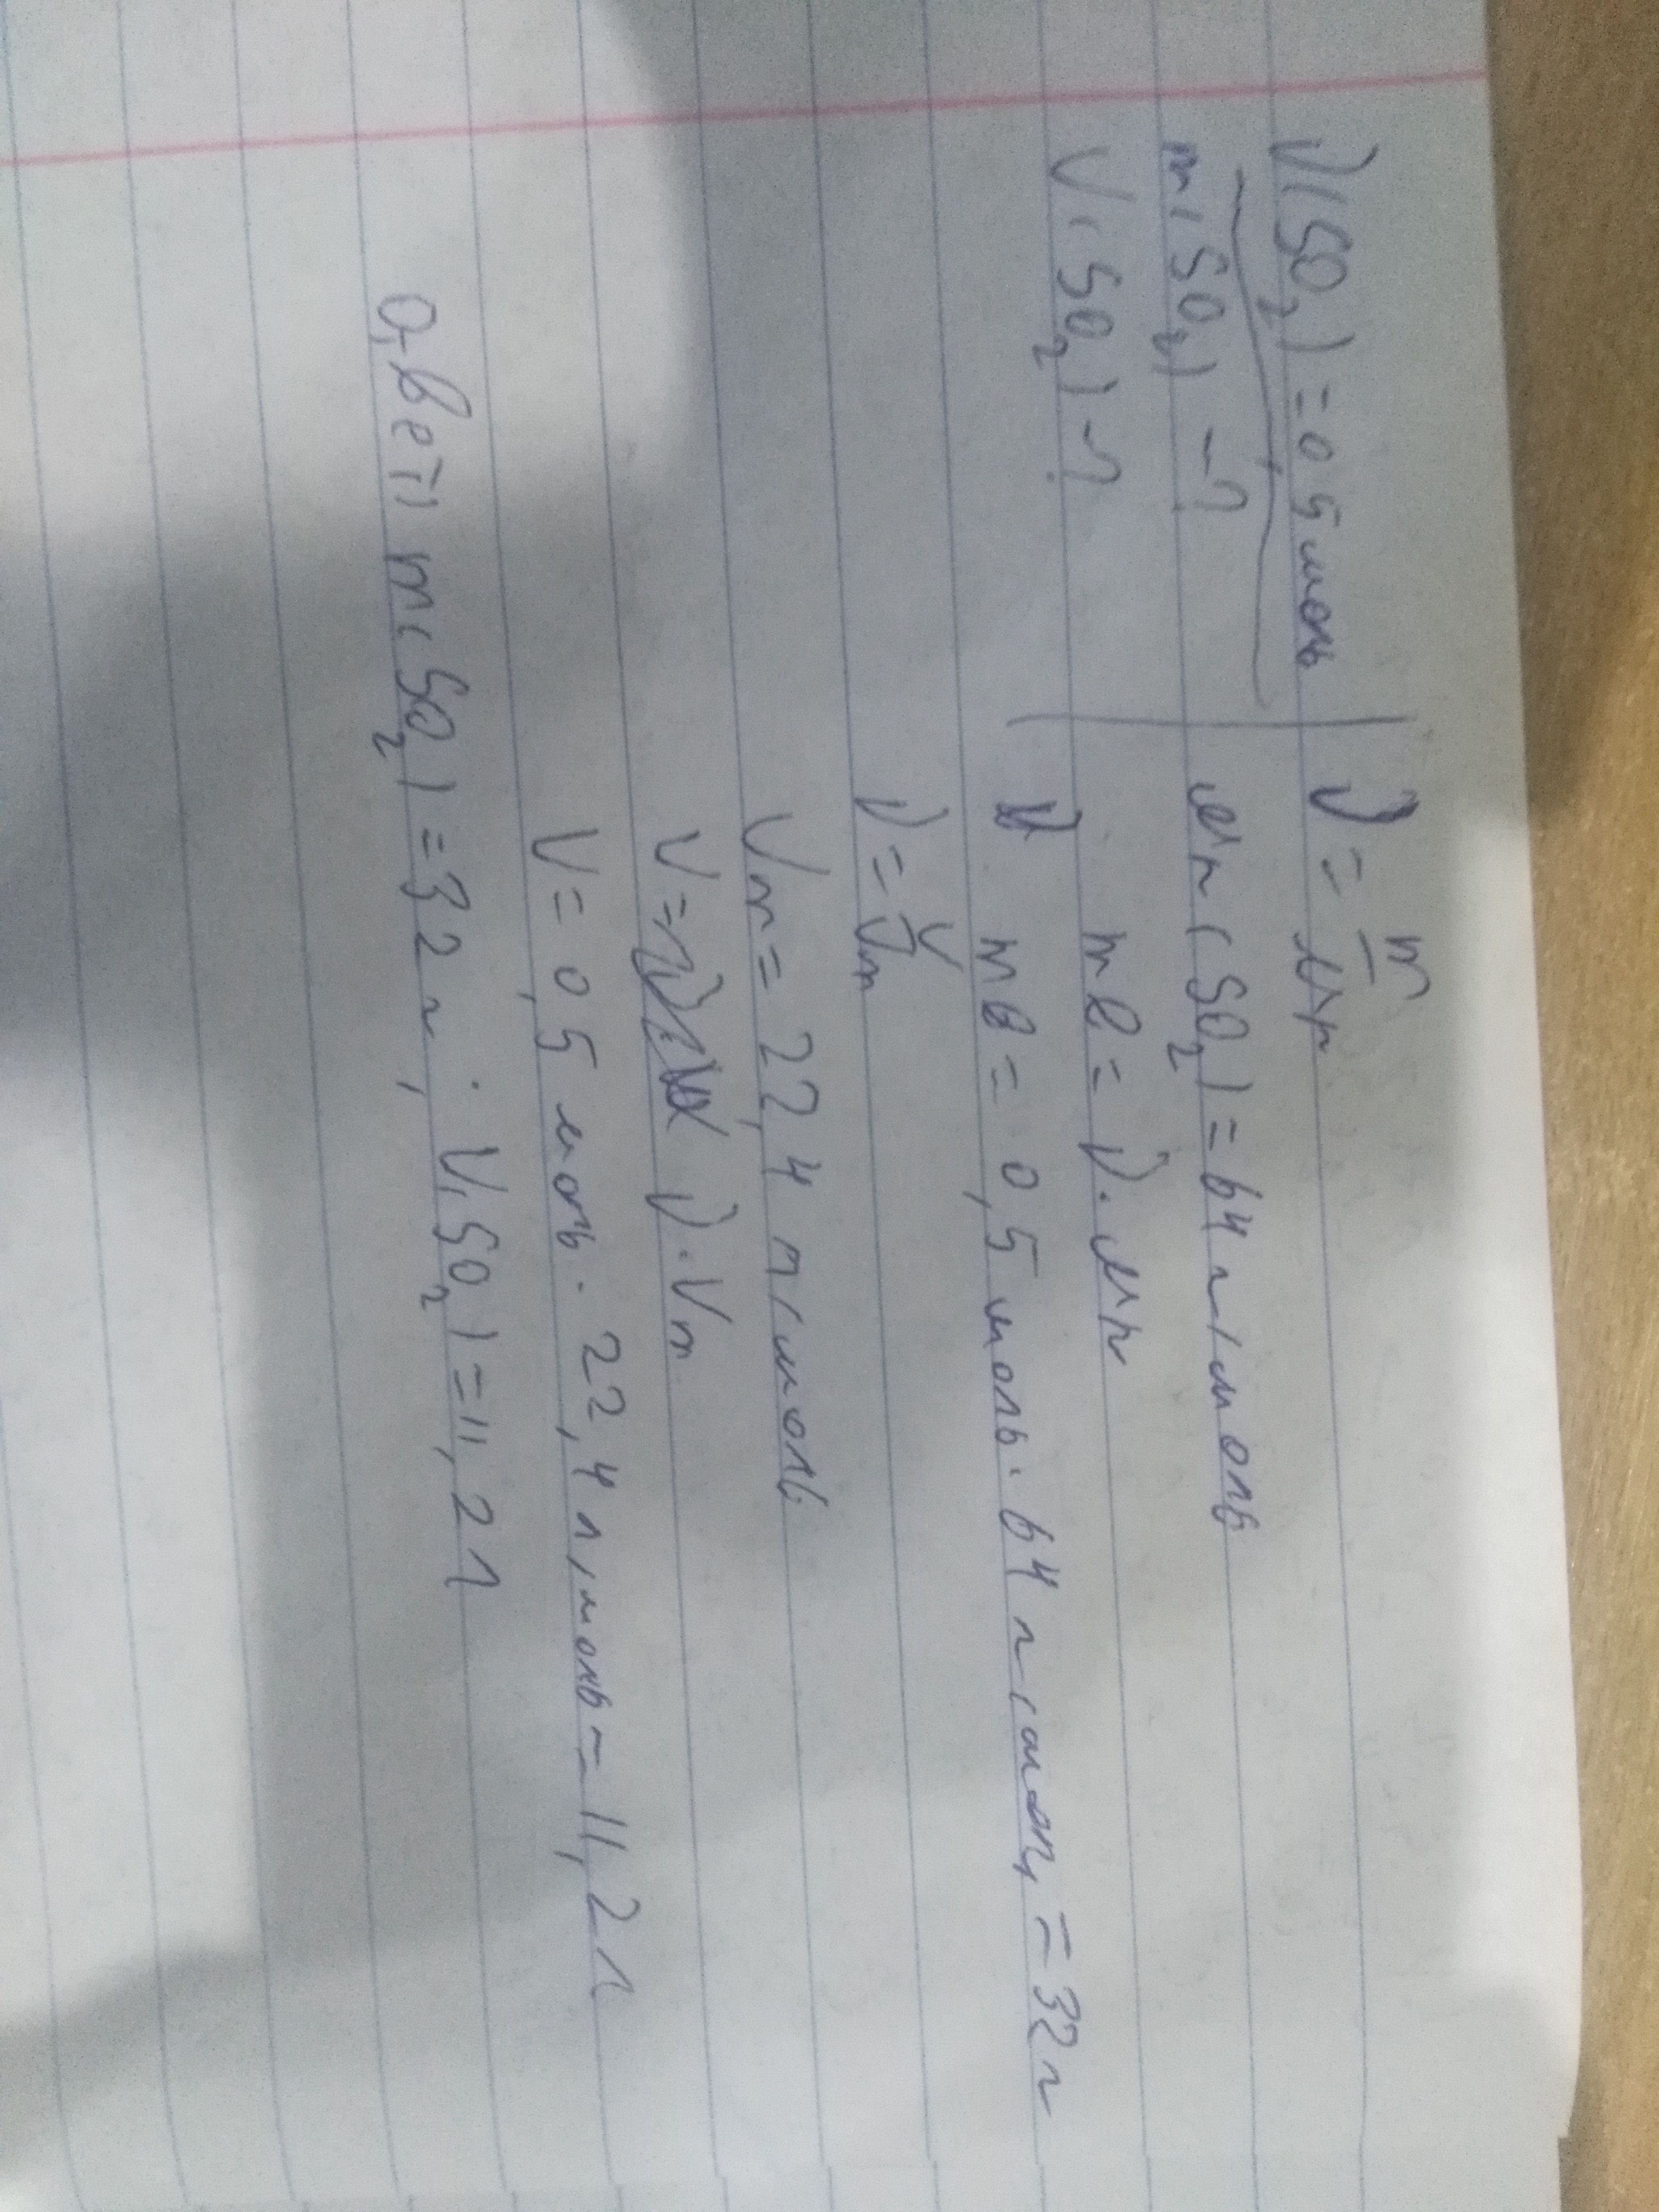 ν(SO₂) = 0,5 моль
m(SO₂) - ?
V(SO₂) - ?
ν = m/Mr
Mr(SO₂) = 64 г/моль
mв = ν · Mr
mв = 0,5 моль · 64 г/моль = 32 г
ν = V/Vm
Vm = 22,4 л/моль
V = ν · Vm
V = 0,5 моль · 22,4 л/моль = 11,2 л
Ответ m(SO₂) = 32 г, V(SO₂) = 11,2 л